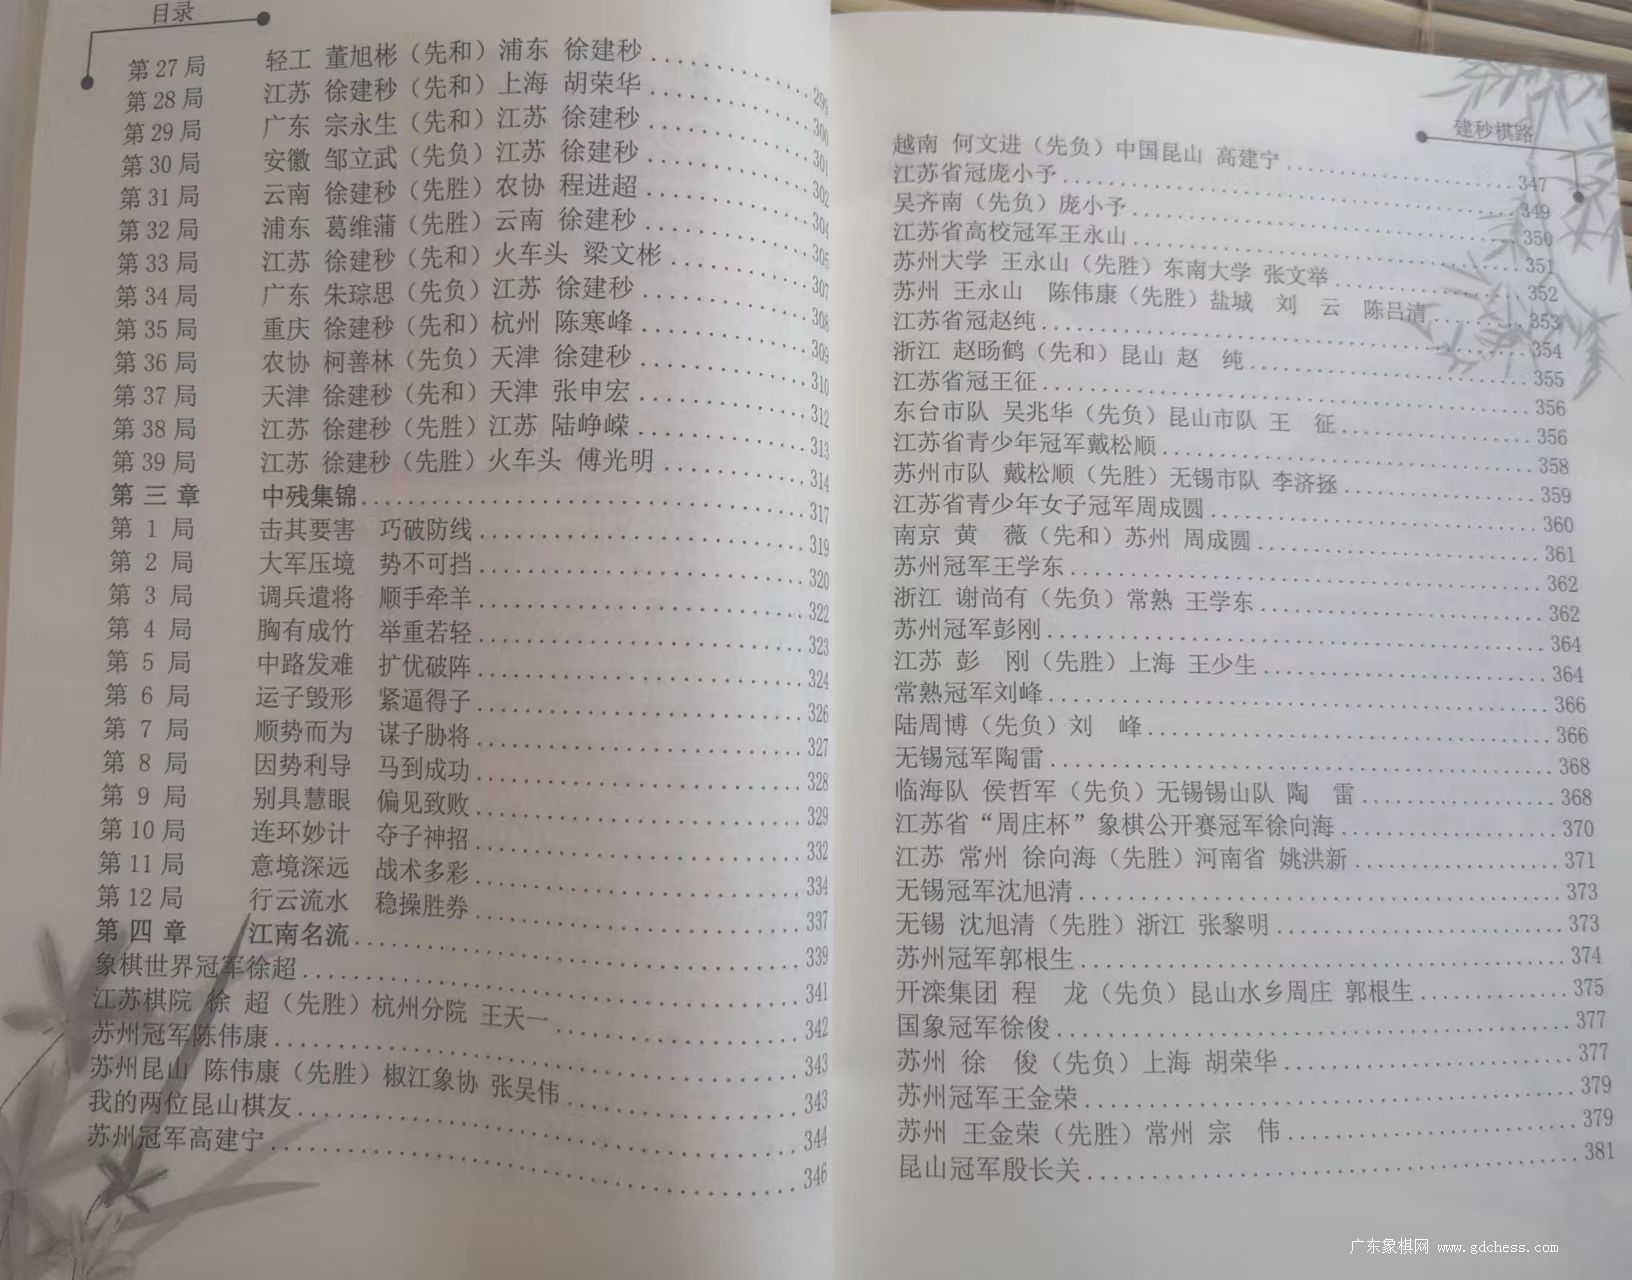 目录
第27局 轻工 董旭彬（先和）浦东 徐建秒 299
第28局 江苏 徐建秒（先和）上海 胡荣华 300
第29局 广东 宗永生（先和）江苏 徐建秒 301
第30局 安徽 邹立武（先负）江苏 徐建秒 302
第31局 云南 徐建秒（先胜）农协 程进超 304
第32局 浦东 葛维蒲（先胜）云南 徐建秒 305
第33局 江苏 徐建秒（先和）火车头 梁文彬 307
第34局 广东 朱琮思（先负）江苏 徐建秒 308
第35局 重庆 徐建秒（先和）杭州 陈寒峰 309
第36局 农协 柯善林（先负）天津 徐建秒 310
第37局 天津 徐建秒（先和）天津 张申宏 312
第38局 江苏 徐建秒（先胜）江苏 陆峥嵘 313
第39局 江苏 徐建秒（先胜）火车头 傅光明 314
第三章 中残集锦 317
第1局 击其要害 巧破防线 319
第2局 大军压境 势不可挡 320
第3局 调兵遣将 顺手牵羊 322
第4局 胸有成竹 举重若轻 323
第5局 中路发难 扩优破阵 324
第6局 运子毁形 紧逼得子 326
第7局 顺势而为 谋子胁将 327
第8局 因势利导 马到成功 328
第9局 别具慧眼 偏见致败 329
第10局 连环妙计 夺子神招 332
第11局 意境深远 战术多彩 334
第12局 行云流水 稳操胜券 337
第四章 江南名流 339
象棋世界冠军徐超 341
江苏棋院 徐 超（先胜）杭州分院 王天一 342
苏州冠军陈伟康 343
苏州昆山 陈伟康（先胜）椒江象协 张吴伟 343
我的两位昆山棋友 344
苏州冠军高建宁 346
建秒棋路
越南 何文进（先负）中国昆山 高建宁 347
江苏省冠庞小予 349
吴齐南（先负）庞小予 350
江苏省高校冠军王永山 351
苏州大学 王永山（先胜）东南大学 张文举 352
苏州 王永山 陈伟康（先胜）盐城 刘 云 陈吕清 353
江苏省冠赵纯 354
浙江 赵旸鹤（先和）昆山 赵 纯 355
江苏省冠王征 356
东台市队 吴兆华（先负）昆山市队 王 征 356
江苏省青少年冠军戴松顺 358
苏州市队 戴松顺（先胜）无锡市队 李济拯 359
江苏省青少年女子冠军周成圆 360
南京 黄 薇（先和）苏州 周成圆 361
苏州冠军王学东 362
浙江 谢尚有（先负）常熟 王学东 362
苏州冠军彭刚 364
江苏 彭 刚（先胜）上海 王少生 364
常熟冠军刘峰 366
陆周博（先负）刘 峰 366
无锡冠军陶雷 368
临海队 侯哲军（先负）无锡锡山队 陶 雷 368
江苏省“周庄杯”象棋公开赛冠军徐向海 370
江苏 常州 徐向海（先胜）河南省 姚洪新 371
无锡冠军沈旭清 373
无锡 沈旭清（先胜）浙江 张黎明 373
苏州冠军郭根生 374
开滦集团 程 龙（先负）昆山水乡周庄 郭根生 375
国象冠军徐俊 377
苏州 徐 俊（先负）上海 胡荣华 377
苏州冠军王金荣 379
苏州 王金荣（先胜）常州 宗 伟 379
昆山冠军殷长关 381
广东象棋网 www.gdchess.com